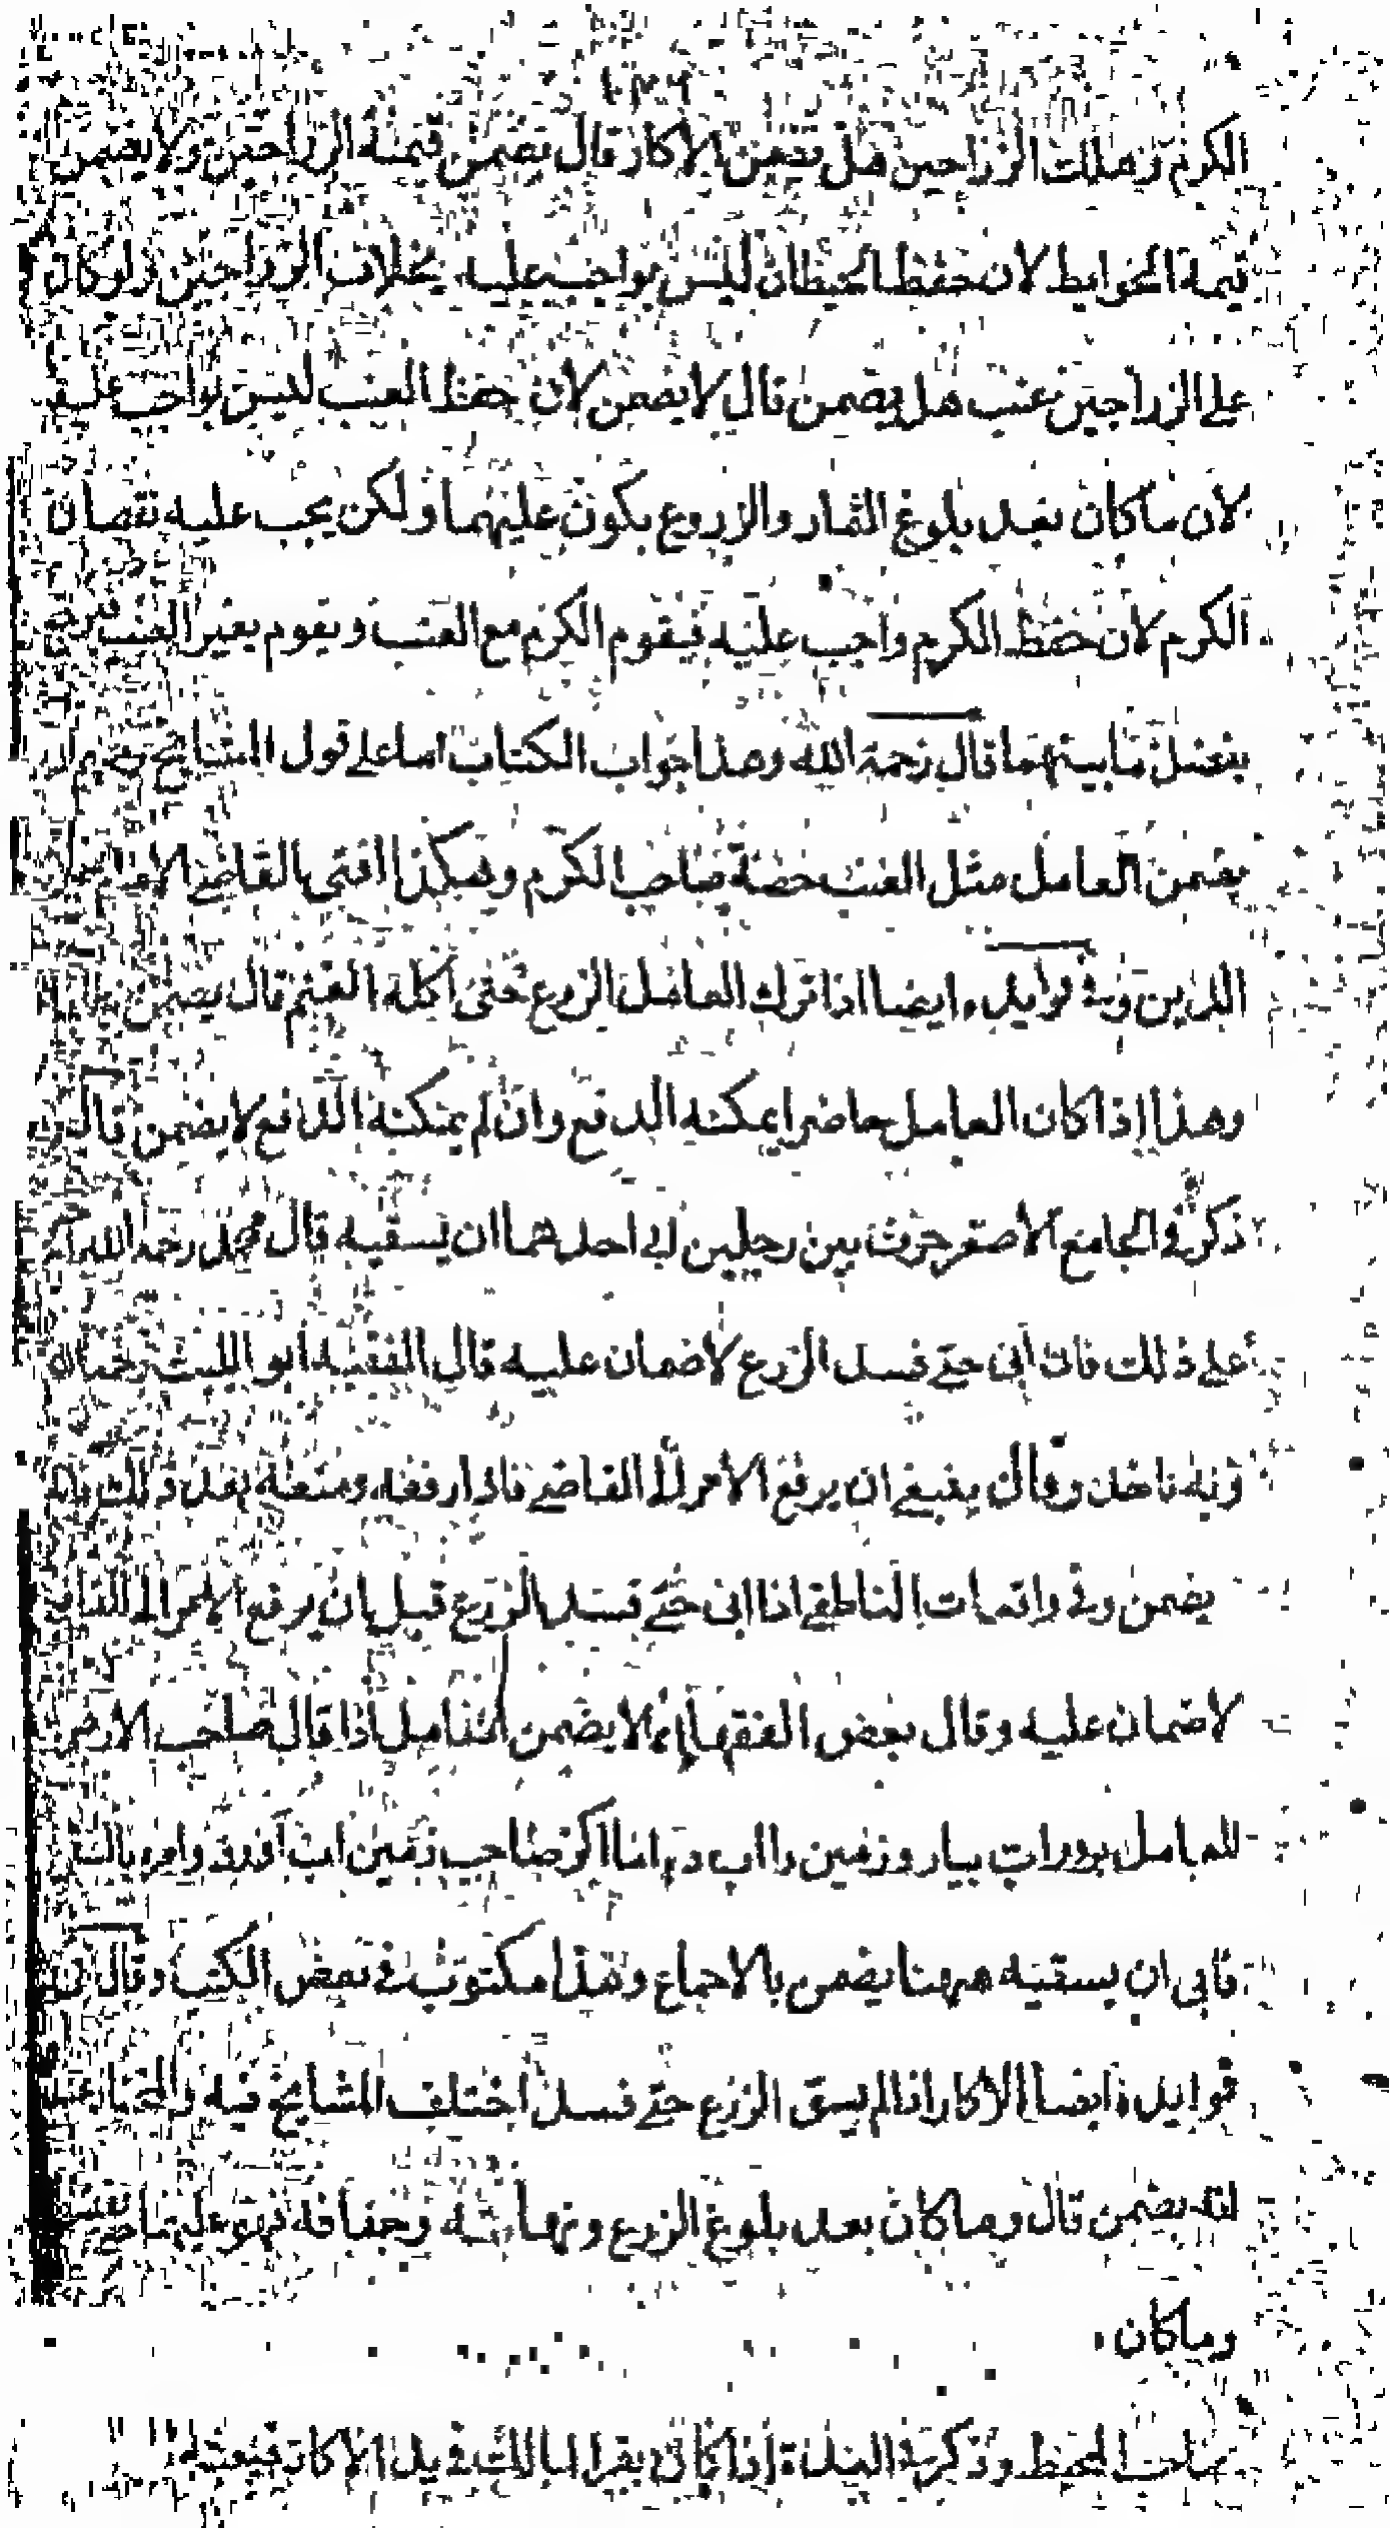 الكرم وهلك الزراجين هل يضمن الاكار قال يضمن قيمة الزراجين ولا يضمن
قيمة الحوايط لان حفظ الحيطان ليس بواجب عليه بخلاف الزراجين ولو كان
على الزراجين عنب هل يضمن قال لا يضمن لان حفظ العنب ليس بواجب عليه
لان ما كان بعد بلوغ الثمار والزروع يكون عليهما ولكن يجب عليه نقصان
الكرم لان حفظ الكرم واجب عليه فيقوم الكرم مع العنب ويقوم بغير العنب
بفضل ما بينهما قال رحمة الله وهذا جواب الكتاب اما على قول المشايخ
يضمن العامل مثل العنب حصة صاحب الكرم وهكذا افتى القاضي الامام
الدين وفي فوايده ايضا اذا ترك العامل الزرع حتى اكله الغنم قال يضمن
وهذا اذا كان العامل حاضرا يمكنه الدفع وان لم يمكنه الدافع لا يضمن قال
ذكر في الجامع الاصغر حرث بين رجلين ابى احدهما ان يسقيه قال محمد رحمه الله
على ذلك فان ابى حتى فسد الزرع لا ضمان عليه قال الفقيه ابو الليث رحمه الله
وبه ناخذ وقال ينبغي ان يرفع الامر الى القاضي فاذا رفعه ومنعه بعد ذلك
يضمن وفي واقعات الناطفي اذا ابى حتى فسد الزرع قبل ان يرفع الامر الى القاضي
لا ضمان عليه وقال بعض الفقهاء انه لا يضمن العامل اذا قال صاحب الارض
للعامل وزمين را اب ده اما اكر صاحب زمين اب وامره
فابى ان يسقيه ههنا يضمن بالاجماع وهذا مكتوب في بعض الكتب وقال في
فوايده ايضا الاكار اذا لم يسق الزرع حتى فسد اختلف المشايخ فيه
انه يضمن قال وما كان بعد بلوغ الزرع ونهايته وجفافه فهو عليهما
وما كان
صاحب المحيط وذكر في اذا كان بقر المالك في يد الاكار فبعثه